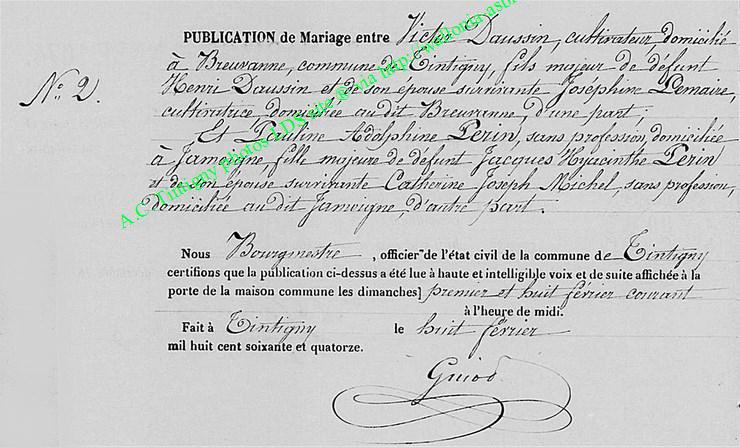 PUBLICATION de Mariage entre Victor Daussin, cultivateur, domicilié
à Breuvanne, commune de Tintigny, fils majeur de défunt
Henri Daussin et de son épouse survivante Joséphine Lemaire,
N° 2.
cultivatrice, domiciliée au dit Breuvanne, d'une part;
Et Pauline Adolphine Perin, sans profession, domiciliée
à Jamoigne, fille majeure de défunt Jacques Hyacinthe Perin
et de son épouse survivante Catherine Joseph Michel, sans profession,
domiciliée au dit Jamoigne, d'autre part.
A.C. Tintigny photos LDS site ® via http://wallonia.ast
Nous Bourgmestre, officier de l'état civil de la commune de Tintigny
certifions que la publication ci-dessus a été lue à haute et intelligible voix et de suite affichée à la
porte de la maison commune les dimanches] premier et huit février courant
à l'heure de midi.
Fait à Tintigny le huit février
mil huit cent soixante et quatorze.